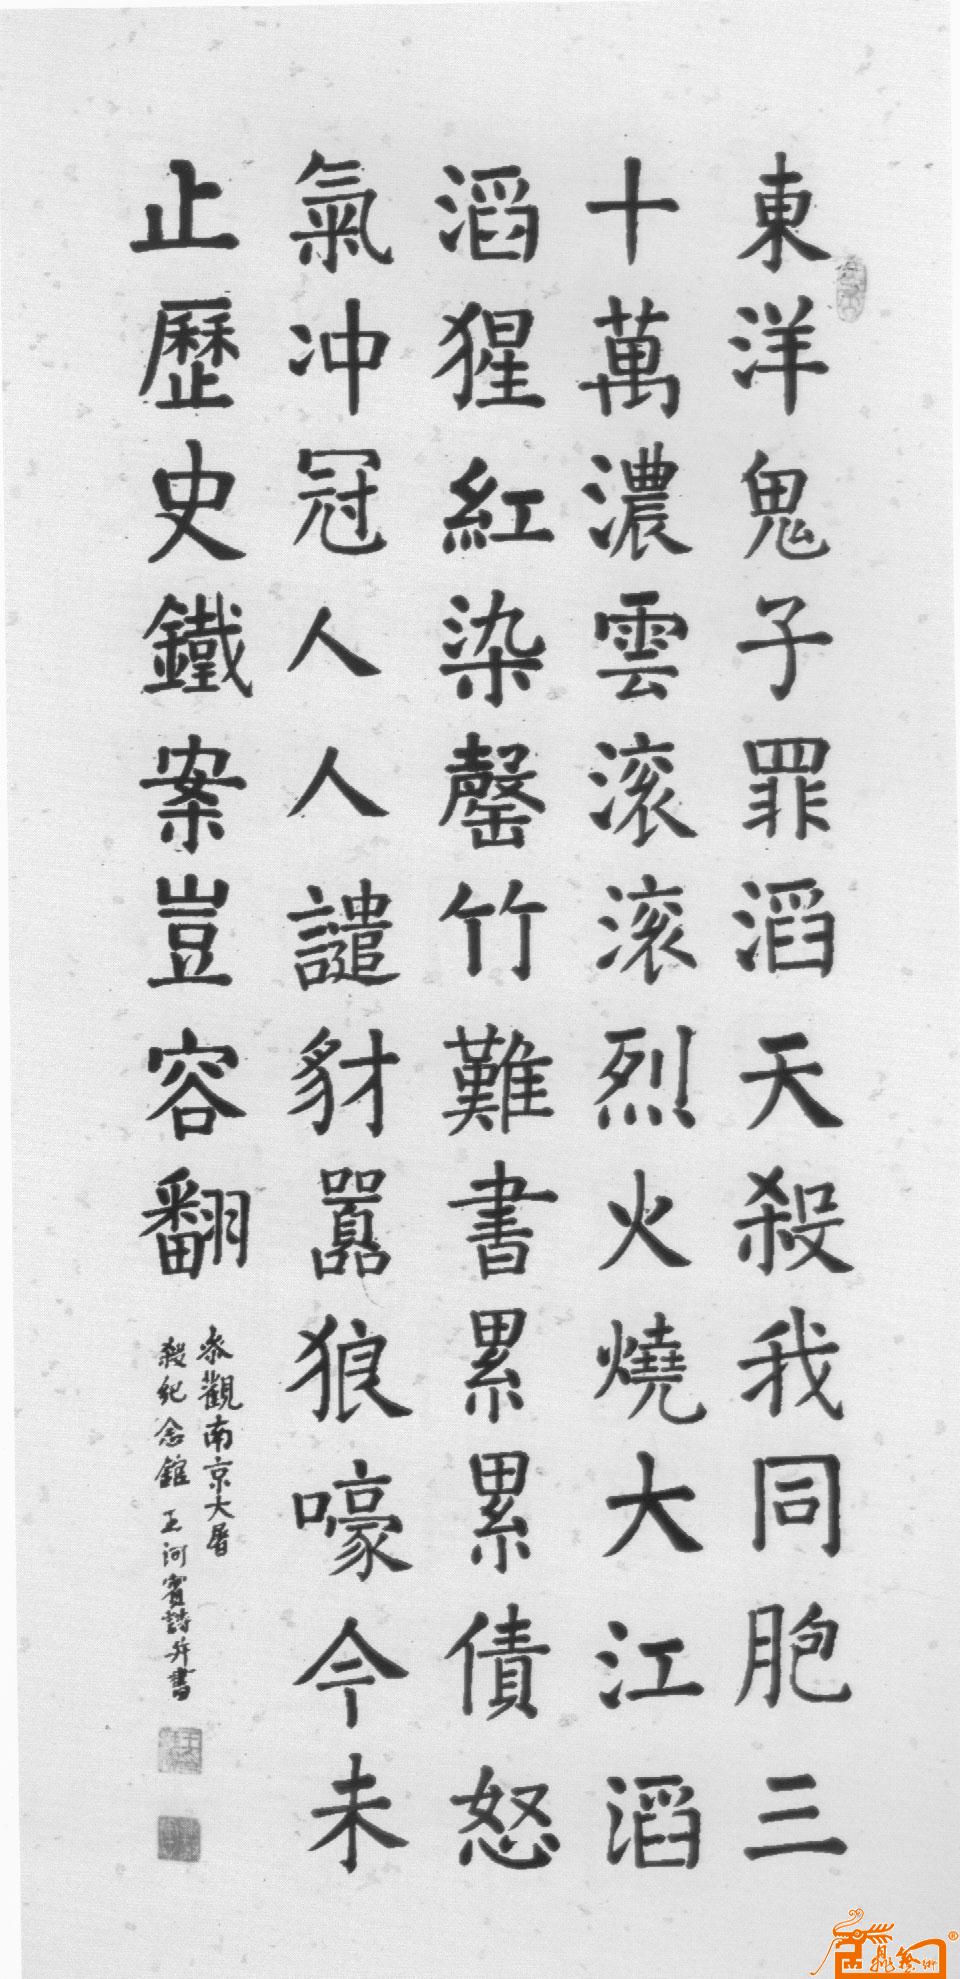 東洋鬼子罪滔天殺我同胞三
十萬濃雲滚滚烈火燒大江滔
滔猩紅染罄竹難書累累債怒
氣冲冠人人譴豺嚣狼嚎今未
止歷史鐵案豈容翻
参觀南京大屠
殺紀念館王河賓詩并書